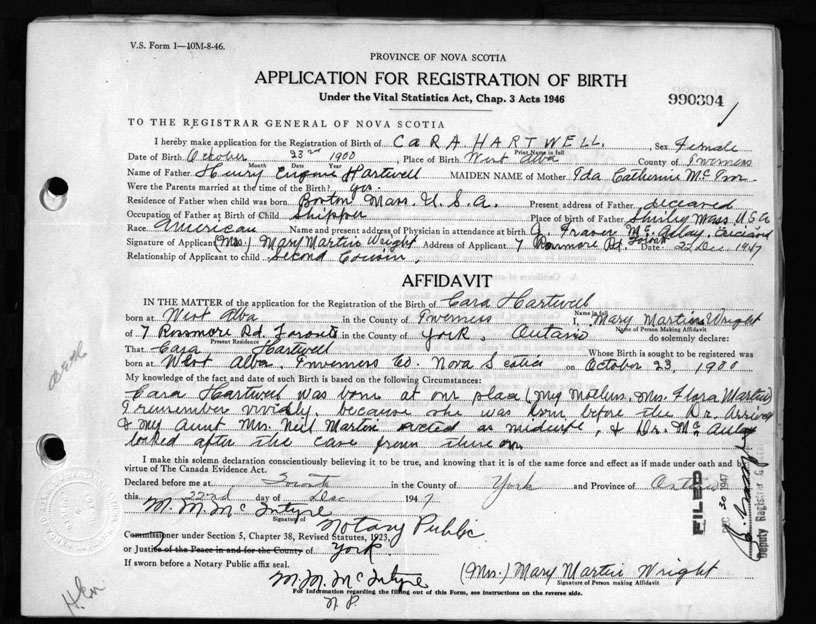 V.S. Form 1—10M-8-46.
PROVINCE OF NOVA SCOTIA
APPLICATION FOR REGISTRATION OF BIRTH
Under the Vital Statistics Act, Chap. 3 Acts 1946
990304
TO THE REGISTRAR GENERAL OF NOVA SCOTIA
I hereby make application for the Registration of Birth of CARA HARTWELL. Sex Female
Print Name in full
Date of Birth October 23rd 1900, Place of Birth West Alba County of Inverness
Month Date Year
Name of Father Henry Eugene Hartwell MAIDEN NAME of Mother Ida Catherine
Were the Parents married at the time of the Birth? yes.
Residence of Father when child was born Boston Mass. U.S.A. Present address of Father deceased
Occupation of Father at Birth of Child Shipper Place of birth of Father Shirley Mass USA
Race American Name and present address of Physician in attendance at birth
Signature of Applicant (Mrs.) Mary Martin Wright Address of Applicant 7 Rossmore Rd. Toronto Date 22 Dec 1947
Relationship of Applicant to child Second Cousin.
AFFIDAVIT
IN THE MATTER of the application for the Registration of the Birth of Cara Hartwell
Name in full
born at West Alba in the County of Inverness I, Mary Martin Wright
Name of Person Making Affidavit
of 7 Rossmore Rd. Toronto in the County of York, Ontario do solemnly declare:
Present Residence
That Cara Hartwell Whose Birth is sought to be registered was
born at West Alba, Inverness Co. Nova Scotia on October 23, 1900
My knowledge of the fact and date of such Birth is based on the following Circumstances:
Cara Hartwell was born at our place (my mothers, Mrs. Flora Martin)
I remember vividly, because she was born before the Dr. arrived
& my aunt Mrs. Neil Martin acted as midwife, & Dr. McAulay
looked after the case from there on.
I make this solemn declaration conscientiously believing it to be true, and knowing that it is of the same force and effect as if made under oath and by
virtue of The Canada Evidence Act.
Declared before me at Toronto in the County of York and Province of Ontario
this 22nd day of Dec 1947
M. M. McIntyre
Signature of
Notary Public
Commissioner under Section 5, Chapter 38, Revised Statutes, 1923,
or Justice of the Peace in and for the County of York.
If sworn before a Notary Public affix seal.
M. M. McIntyre
N P.
(Mrs.) Mary Martin Wright
Signature of Person making Affidavit
For Information regarding the filling out of this Form, see instructions on the reverse side.
FILED
DEC 30 1947
Deputy Registrar General